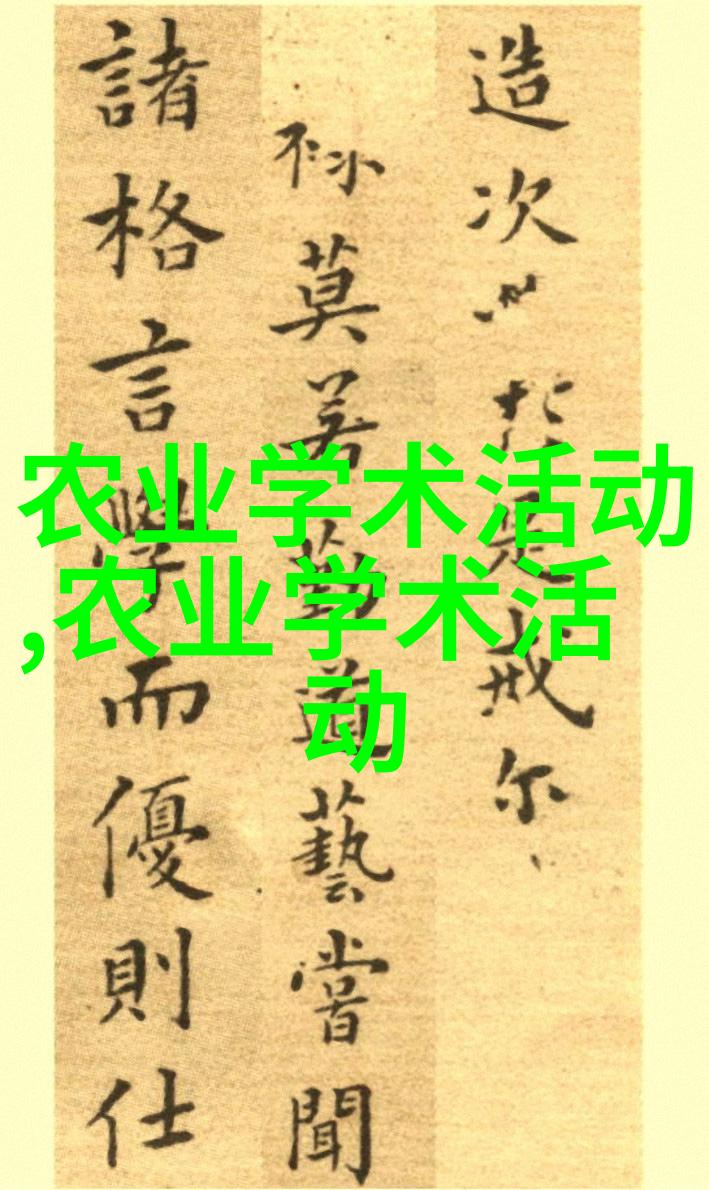 造次是戒尔
莫若勤道藝嘗聞
諸格言學而優則仕
农业学术活动
,农业学术活
动